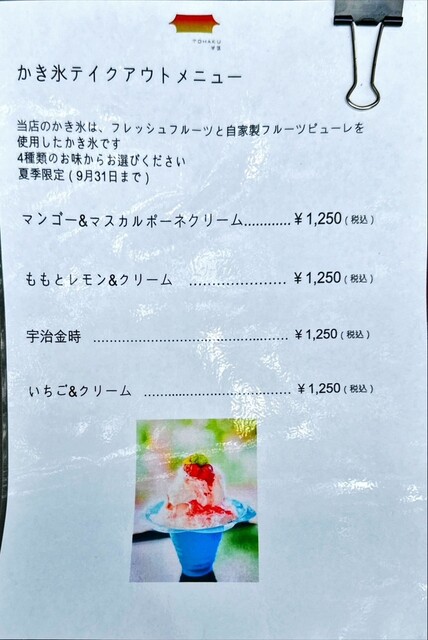 TOHAKU
かき氷テイクアウトメニュー
当店のかき氷は、フレッシュフルーツと自家製フルーツピューレを
使用したかき氷です
4種類のお味からお選びください
夏季限定(9月31日まで)
マンゴー&マスカルポーネクリーム............¥1,250(税込)
ももとレモン&クリーム ........................¥1,250(税込)
宇治金時 ................................................¥1,250(税込)
いちご&クリーム ....................................¥1,250(税込)